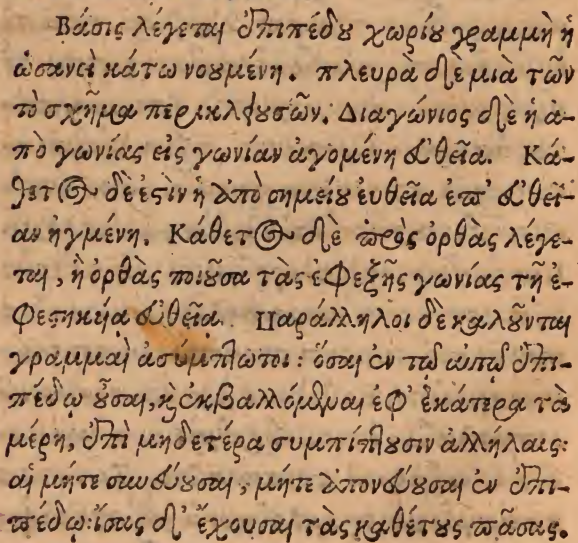 Βάσις λέγεται ἐπιπέδου χωρίου γραμμὴ ἡ
ὡσανεὶ κάτω νουμένη. πλευρὰ δὲ μιὰ τῶν
τὸ σχῆμα περικλειουσῶν. Διαγώνιος δὲ ἡ ἀ-
πὸ γωνίας εἰς γωνίαν ἀγομένη εὐθεῖα. Κά-
θετος δὲ ἐςὶν ἡ ἀπὸ σημείου ἐυθεῖα ἐπ' εὐθεῖ-
αν ἠγμένη. Κάθετος δὲ πρὸς ὀρθὰς λέγε-
ται, ἡ ὀρθὰς ποιοῦσα τὰς ἐφεξῆς γωνίας τῇ ἐ-
φεςηκήα εὐθεῖα. Παράλληλοι δὲ καλοῦνται
γραμμαὶ ἀσύμπτωτοι: ὅσαι ἐν τῷ αὐτῷ ἐπι-
πέδῳ οὖσαι, καὶ ἐκβαλλόμεναι ἐφ' ἑκάτερα τὰ
μέρη, ἐπὶ μηδετέρα συμπίπτουσιν ἀλλήλαις:
αἱ μήτε συνεύουσαι, μήτε ἀπονεύουσαι ἐν ἐπι-
πέδῳ: ἴσας δ' ἔχουσαι τὰς καθέτους πᾶσας.